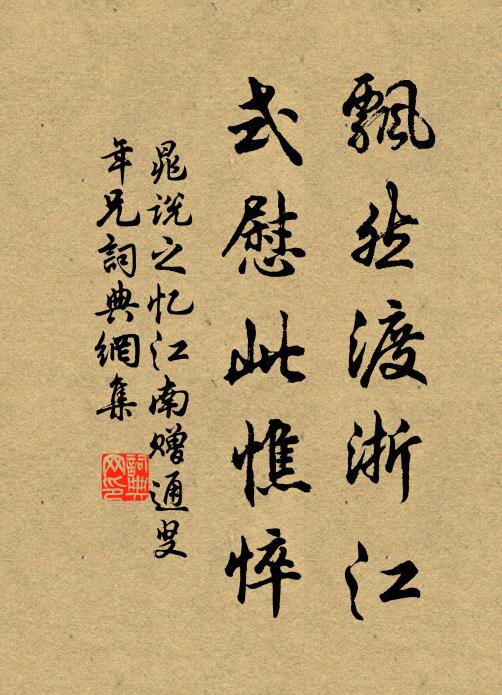 飄然渡浙江
式慰此憔悴
晁說之忆江南赠通叟
年兄詞典網集
詞典网印